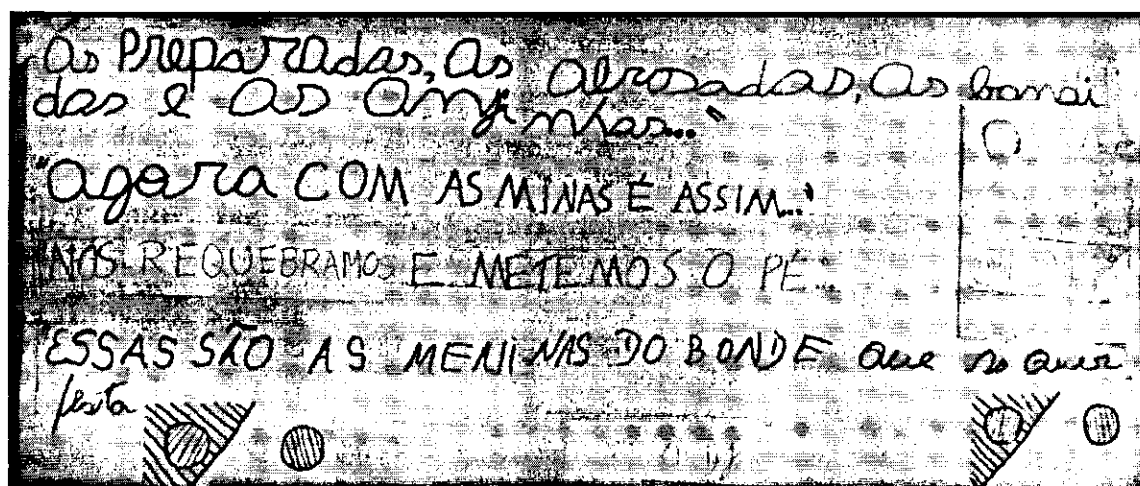 As Preparadas, As abrosadas, As bandi
das e As Anjinhas..."
"Agora COM AS MINAS É ASSIM..."
NÓS REQUEBRAMOS E METEMOS O PÉ...
ESSAS SÃO AS MENINAS DO BONDE que so quer
festa